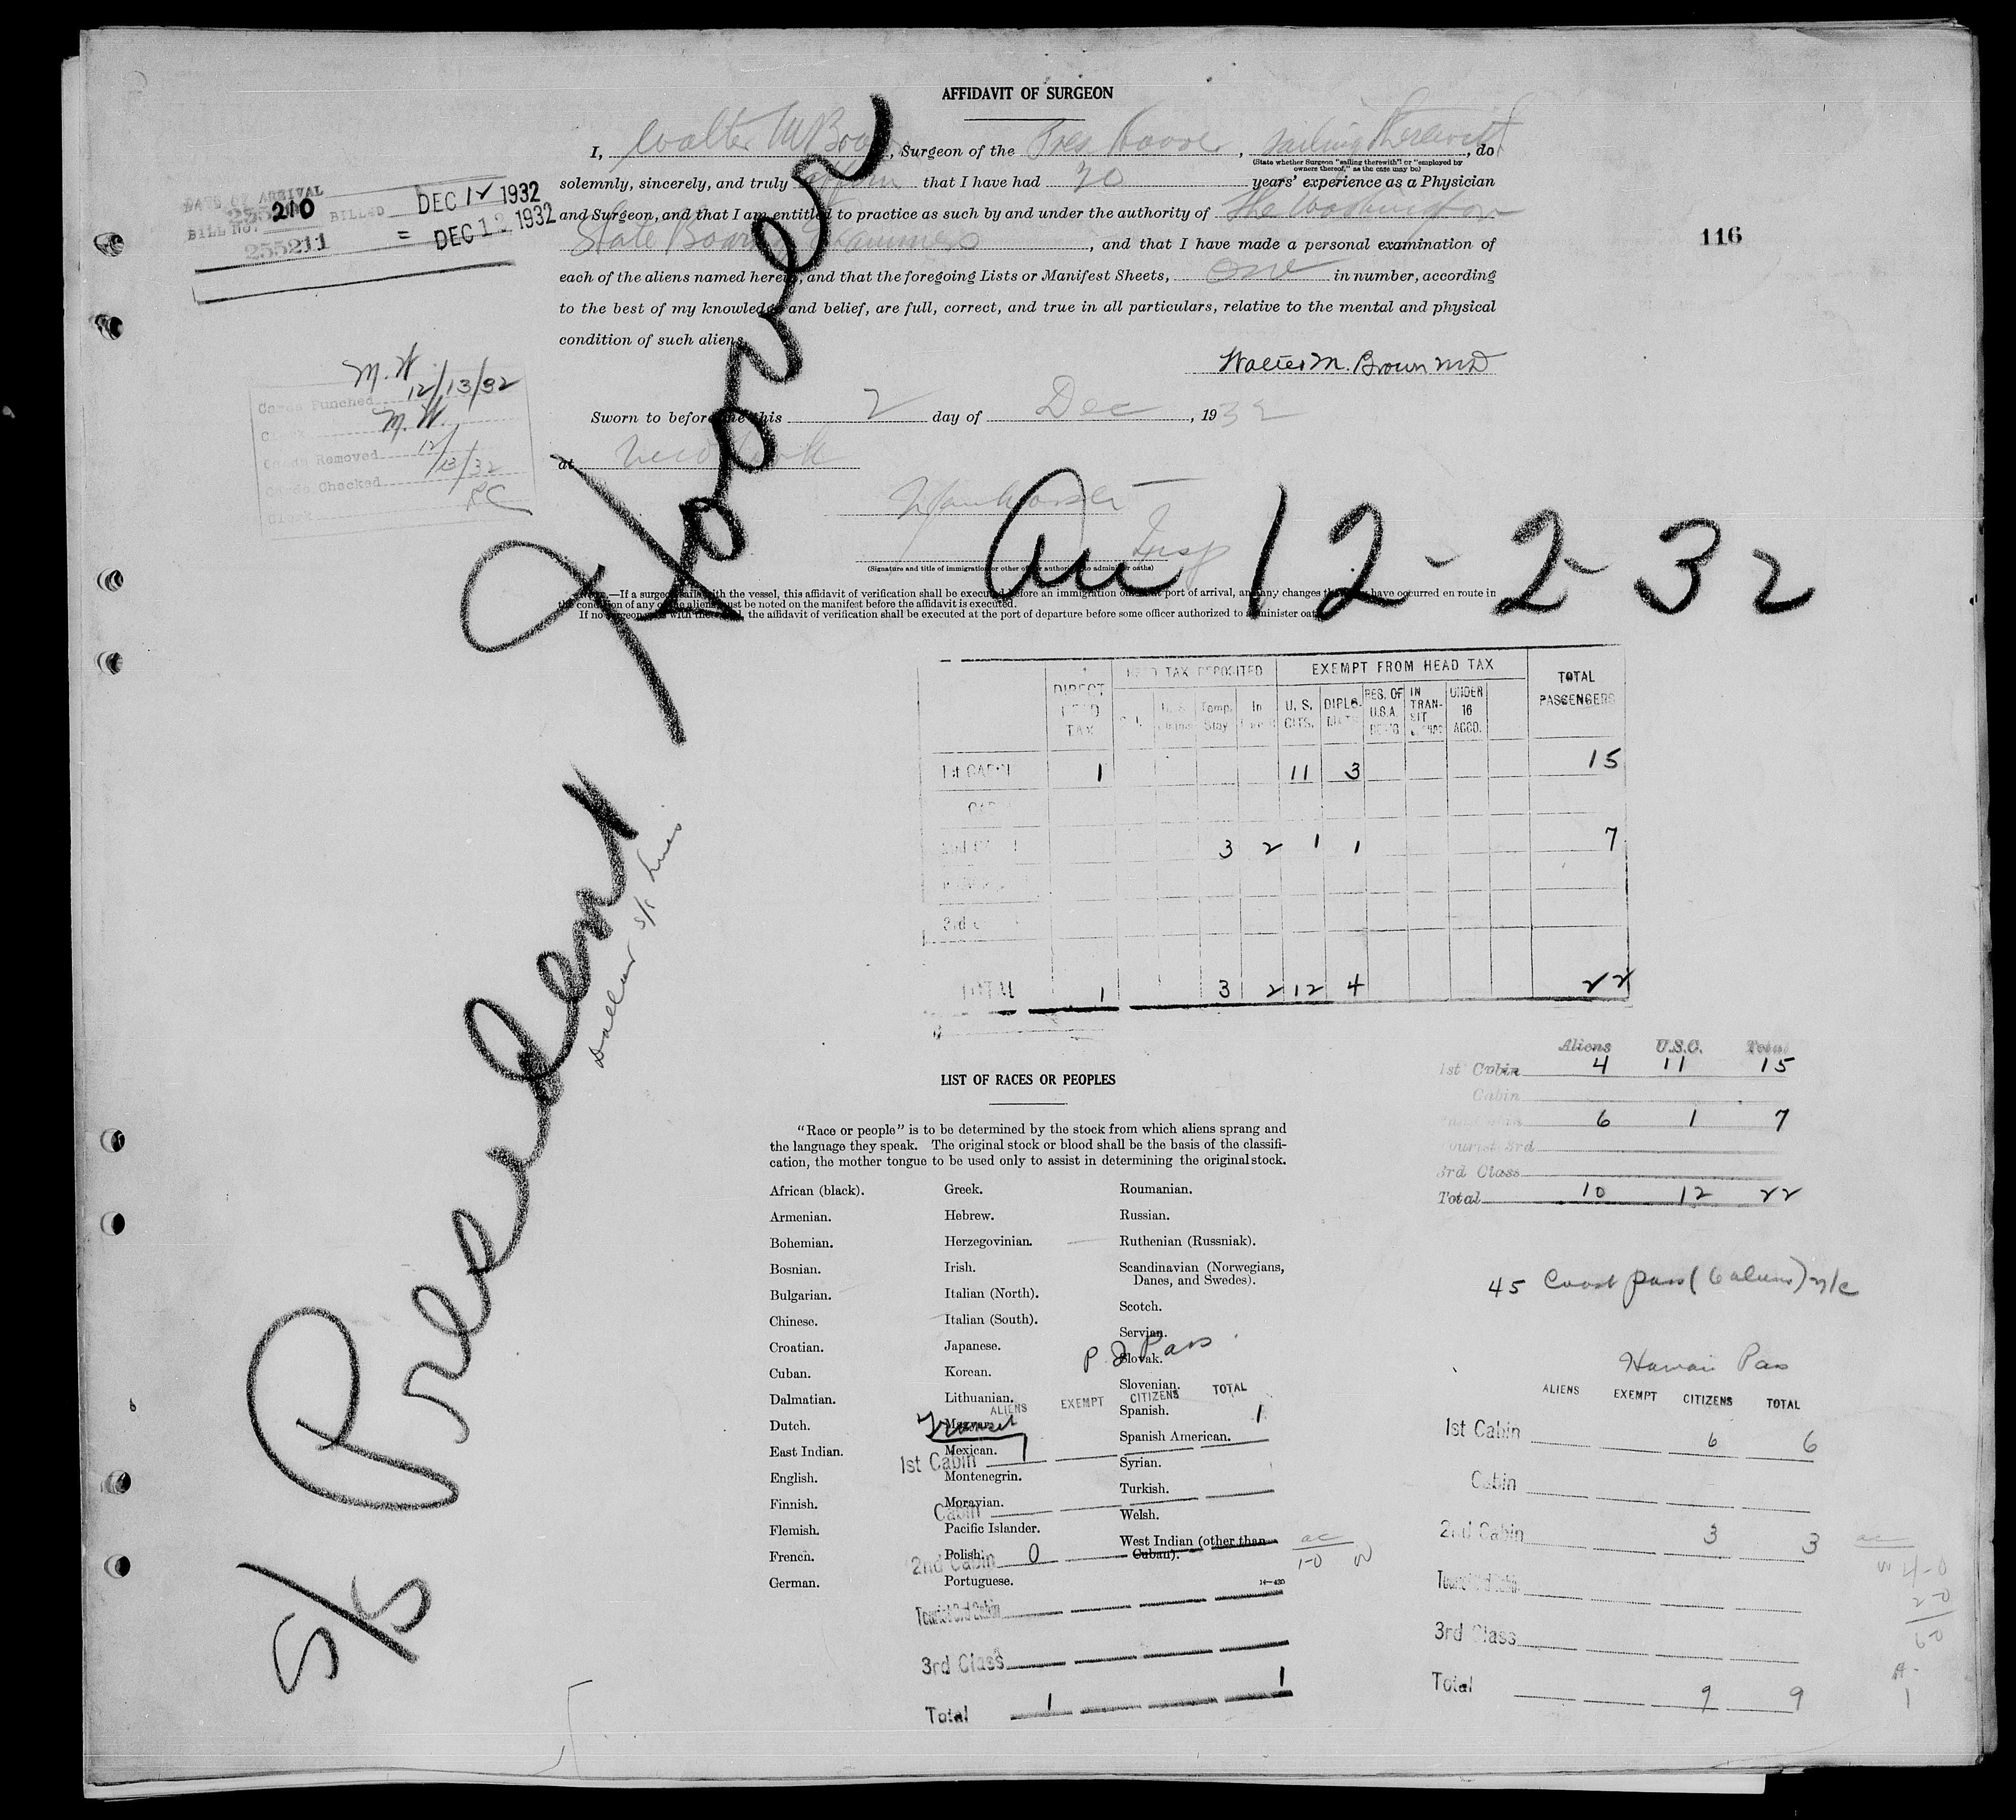 AFFIDAVIT OF SURGEON
I, Walter M Brown, Surgeon of the Pres Hoover, sailing therewith, do
(State whether Surgeon "sailing therewith" or "employed by
owners thereof," as the case may be)
solemnly, sincerely, and truly affirm that I have had 30 years' experience as a Physician
and Surgeon, and that I am entitled to practice as such by and under the authority of The Washington
State Board Examiners, and that I have made a personal examination of
each of the aliens named herein, and that the foregoing Lists or Manifest Sheets, one in number, according
to the best of my knowledge and belief, are full, correct, and true in all particulars, relative to the mental and physical
condition of such aliens.
Walter M. Brown MD
Sworn to before me this 2 day of Dec, 1932
at New York
Insp
(Signature and title of immigration or other officer authorized to administer oaths)
NOTE.—If a surgeon sails with the vessel, this affidavit of verification shall be executed before an immigration officer at port of arrival, and any changes that may have occurred en route in
the condition of any of the aliens must be noted on the manifest before the affidavit is executed.
If no surgeon sails with the vessel, the affidavit of verification shall be executed at the port of departure before some officer authorized to administer oaths.
DATE OF ARRIVAL
210
BILLED DEC 12 1932
BILL NO.
255211 = DEC 12 1932
116
M.W.
Cards Punched 12/13/32
M.W.
Cards Removed 12/13/32
Cards Checked
RC
S/S President Hoover
Dollar S/S Lines
Arr 12-2-32
DIRECT HEAD TAX
HEAD TAX DEPOSITED
Temp. Stay
In
EXEMPT FROM HEAD TAX
U. S. CITS.
DIPLO-MATS
RES. OF U.S.A.
IN TRAN-SIT
UNDER 16 ACCD.
TOTAL PASSENGERS
1st CABIN 1 11 3 15
3 2 1 1 7
3rd
TOTAL 1 3 2 12 4 22
Aliens U.S.C. Total
1st Cabin 4 11 15
Cabin
6 1 7
Tourist 3rd
3rd Class
Total 10 12 22
LIST OF RACES OR PEOPLES
"Race or people" is to be determined by the stock from which aliens sprang and
the language they speak. The original stock or blood shall be the basis of the classifi-
cation, the mother tongue to be used only to assist in determining the original stock.
African (black).
Armenian.
Bohemian.
Bosnian.
Bulgarian.
Chinese.
Croatian.
Cuban.
Dalmatian.
Dutch.
East Indian.
English.
Finnish.
Flemish.
French.
German.
Greek.
Hebrew.
Herzegovinian.
Irish.
Italian (North).
Italian (South).
Japanese.
Korean.
Lithuanian.
Magyar.
Mexican.
Montenegrin.
Moravian.
Pacific Islander.
Polish.
Portuguese.
Roumanian.
Russian.
Ruthenian (Russniak).
Scandinavian (Norwegians,
Danes, and Swedes).
Scotch.
Servian.
Slovak.
Slovenian.
Spanish.
Spanish American.
Syrian.
Turkish.
Welsh.
West Indian (other than
Cuban).
Pass
ALIENS EXEMPT CITIZENS TOTAL
Transit
1st Cabin 1 1
Cabin
2nd Cabin 0
Tourist 3rd Cabin
3rd Class
Total 1 1
45 Coast pass (6 aliens) n/c
Hawaii Pass
ALIENS EXEMPT CITIZENS TOTAL
1st Cabin 6 6
Cabin
2nd Cabin 3 3
Tourist 3rd Cabin
3rd Class
Total 9 9